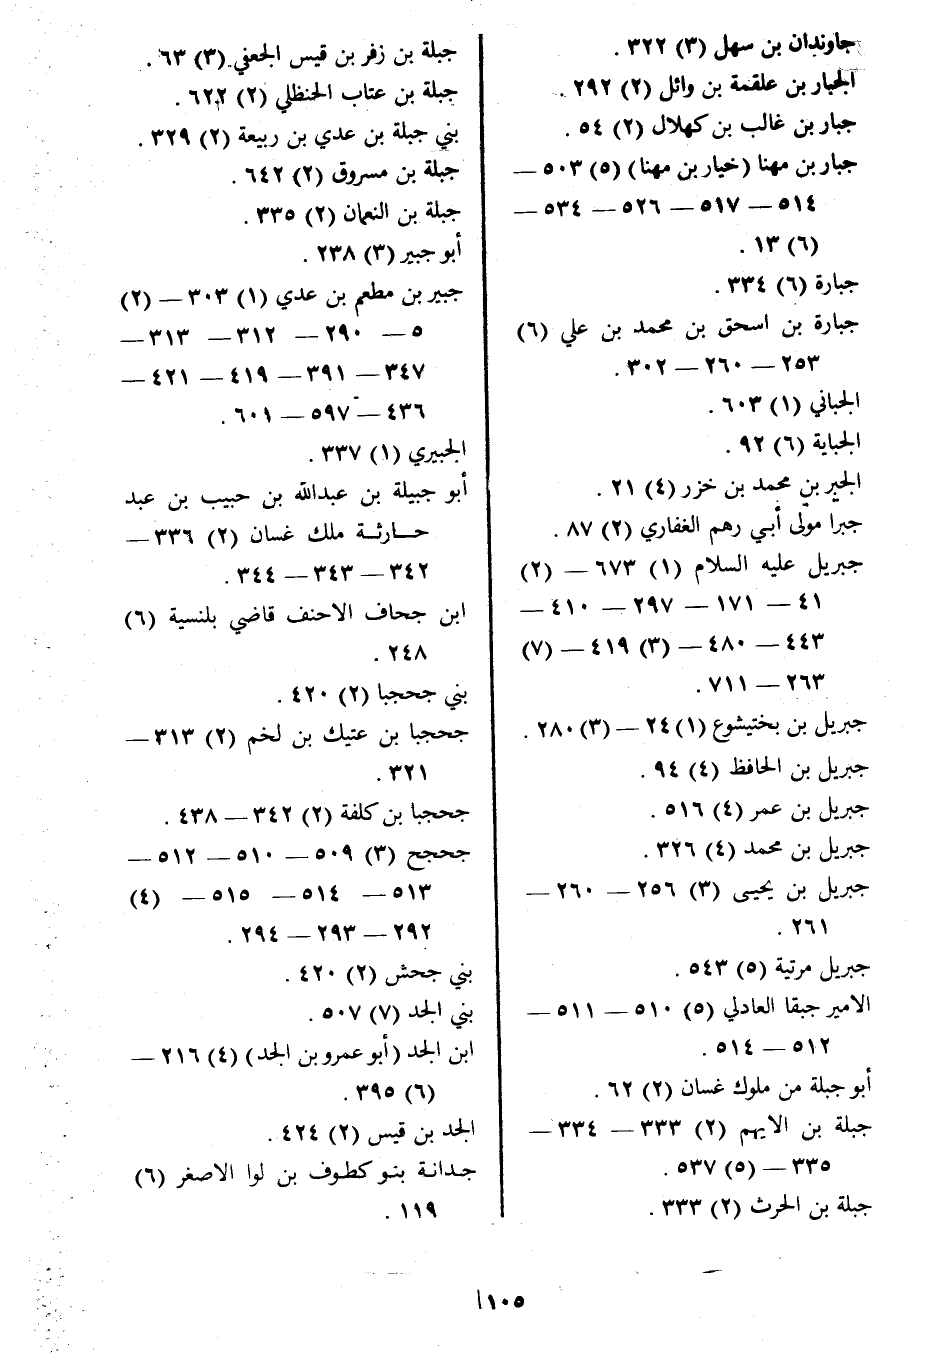 جاوندان بن سهل (٣) ٣٢٢ .
الجبار بن علقمة بن وائل (٢) ٢٩٢ .
جبار بن غالب بن كهلال (٢) ٥٤ .
جبار بن مهنا (خيار بن مهنا) (٥) ٥٠٣ —
٥١٤ — ٥١٧ — ٥٢٦ — ٥٣٤ —
(٦) ١٣ .
جبارة (٦) ٣٣٤ .
جبارة بن اسحق بن محمد بن علي (٦)
٢٥٣ — ٢٦٠ — ٣٠٢ .
الجباني (١) ٦٠٣ .
الجباية (٦) ٩٢ .
الجبر بن محمد بن خزر (٤) ٢١ .
جبرا مولى أبي رهم الغفاري (٢) ٨٧ .
جبريل عليه السلام (١) ٦٧٣ — (٢)
٤١ — ١٧١ — ٢٩٧ — ٤١٠ —
٤٤٣ — ٤٨٠ — (٣) ٤١٩ — (٧)
٢٦٣ — ٧١١ .
جبريل بن بختيشوع (١) ٢٤ — (٣) ٢٨٠ .
جبريل بن الحافظ (٤) ٩٤ .
جبريل بن عمر (٤) ٥١٦ .
جبريل بن محمد (٤) ٣٢٦ .
جبريل بن يحيى (٣) ٢٥٦ — ٢٦٠ —
٢٦١ .
جبريل مرتبة (٥) ٥٤٣ .
الامير جبقا العادلي (٥) ٥١٠ — ٥١١ —
٥١٢ — ٥١٤ .
أبو جبلة من ملوك غسان (٢) ٦٢ .
جبلة بن الايهم (٢) ٣٣٣ — ٣٣٤ —
٣٣٥ — (٥) ٥٣٧ .
جبلة بن الحرث (٢) ٣٣٣ .
جبلة بن زفر بن قيس الجعفي (٣) ٦٣ .
جبلة بن عتاب الحنظلي (٢) ٦٢٢ .
بني جبلة بن عدي بن ربيعة (٢) ٣٢٩ .
جبلة بن مسروق (٢) ٦٤٢ .
جبلة بن النعمان (٢) ٣٣٥ .
أبو جبير (٣) ٢٣٨ .
جبير بن مطعم بن عدي (١) ٣٠٣ — (٢)
٥ — ٢٩٠ — ٣١٢ — ٣١٣ —
٣٤٧ — ٣٩١ — ٤١٩ — ٤٢١ —
٤٣٦ — ٥٩٧ — ٦٠١ .
الجبيري (١) ٣٣٧ .
أبو جبيلة بن عبدالله بن حبيب بن عبد
حارثة ملك غسان (٢) ٣٣٦ —
٣٤٢ — ٣٤٣ — ٣٤٤ .
ابن جحاف الاحنف قاضي بلنسية (٦)
٢٤٨ .
بني جحجبا (٢) ٤٢٠ .
جحجبا بن عتيك بن لخم (٢) ٣١٣ —
٣٢١ .
جحجبا بن كلفة (٢) ٣٤٢ — ٤٣٨ .
جحجح (٣) ٥٠٩ — ٥١٠ — ٥١٢ —
٥١٣ — ٥١٤ — ٥١٥ — (٤)
٢٩٢ — ٢٩٣ — ٢٩٤ .
بني جحش (٢) ٤٢٠ .
بني الجد (٧) ٥٠٧ .
ابن الجد (أبو عمرو بن الجد) (٤) ٢١٦ —
(٦) ٣٩٥ .
الجد بن قيس (٢) ٤٢٤ .
جدانة بنو كطوف بن لوا الاصغر (٦)
١١٩ .
١٠٥